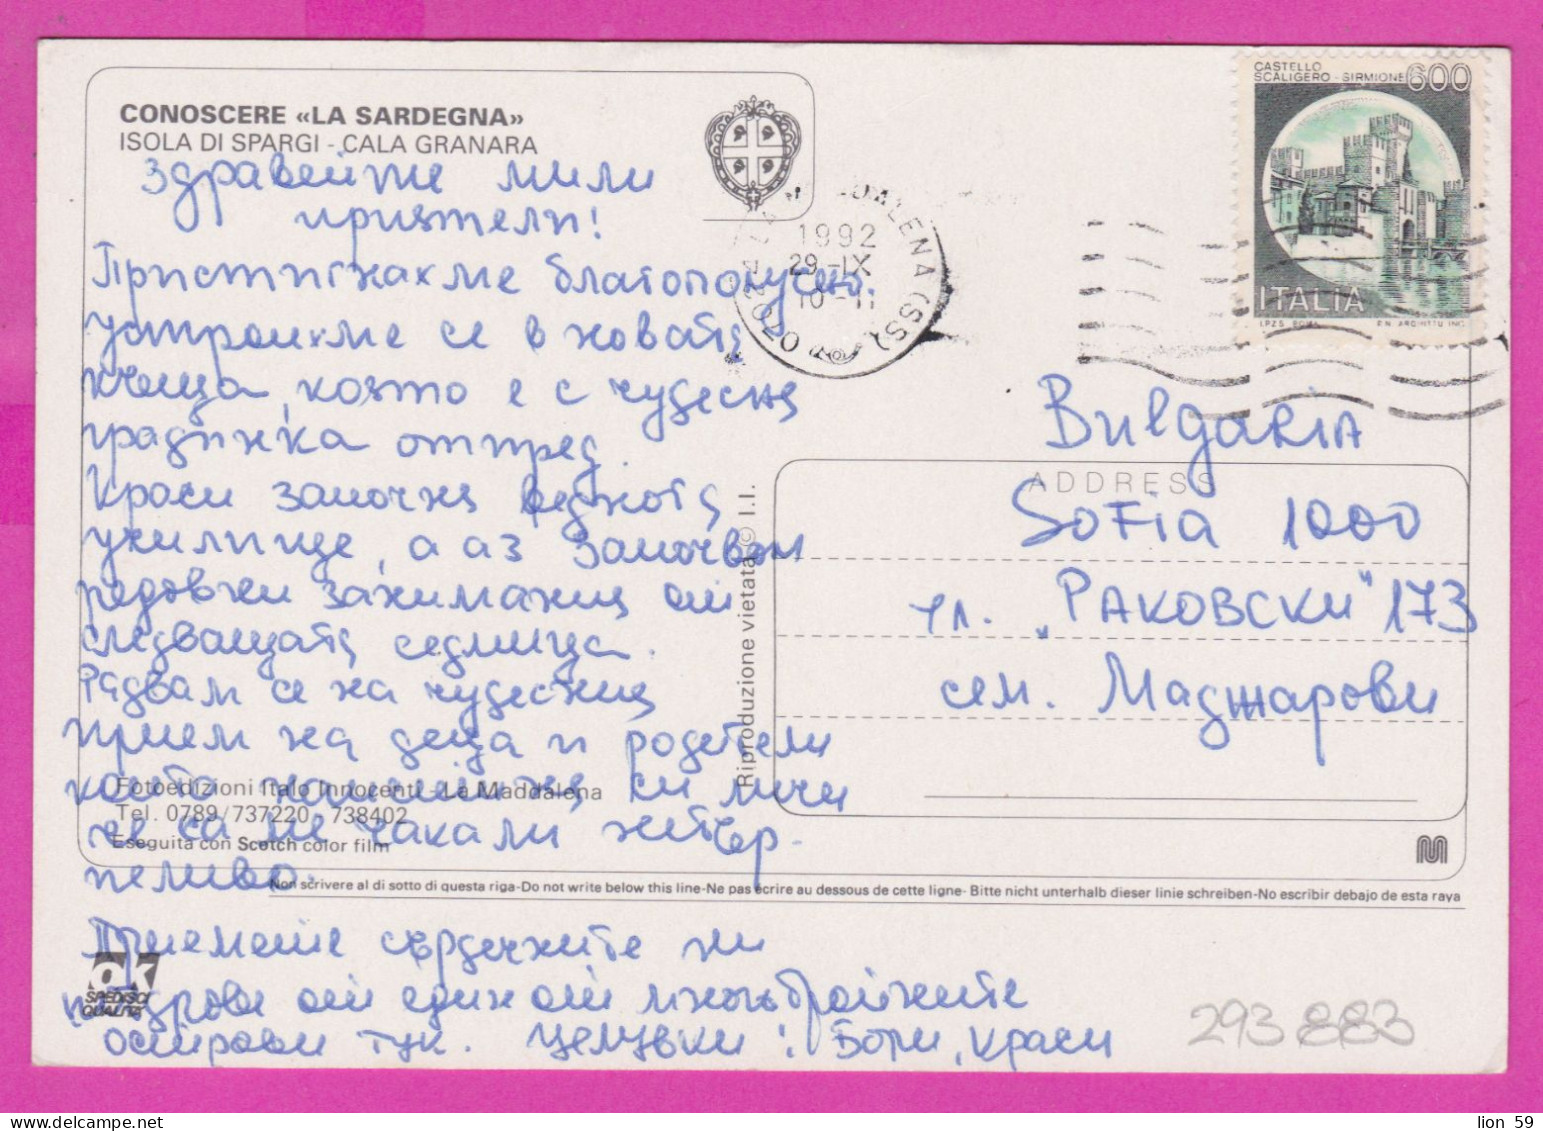 CONOSCERE «LA SARDEGNA»
ISOLA DI SPARGI - CALA GRANARA
Здравейте мили
приятели!
Пристигнахме благополучно.
устроихме се в новата
къща, която е с чудесна
градинка отпред.
Краси започна веднага
училище, а аз започвам
редовни занимания от
следващата седмица.
Радвам се на чудесния
прием на деца и родители
които наистина си личи
че са ме чакали нетър-
пеливо.
Приемете сърдечните ни
поздрави от един от многобройните
острови тук. Целувки: Боти, Краси
Fotoedizioni Italo Innocenti - La Maddalena
Tel. 0789/737220 - 738402
Eseguita con Scotch color film
Non scrivere al di sotto di questa riga-Do not write below this line-Ne pas écrire au dessous de cette ligne- Bitte nicht unterhalb dieser linie schreiben-No escribir debajo de esta raya
SPEDISCI
QUALITÀ
Riproduzione vietata © I.I.
CASTELLO
SCALIGERO - SIRMIONE 600
ITALIA
I.P.Z.S. ROMA
07024 LA MADDALENA (SS)
1992
29-IX
10-11
Bulgaria
ADDRESS
Sofia 1000
ул. „Раковски" 173
сем. Маджарови
293883
lion 59